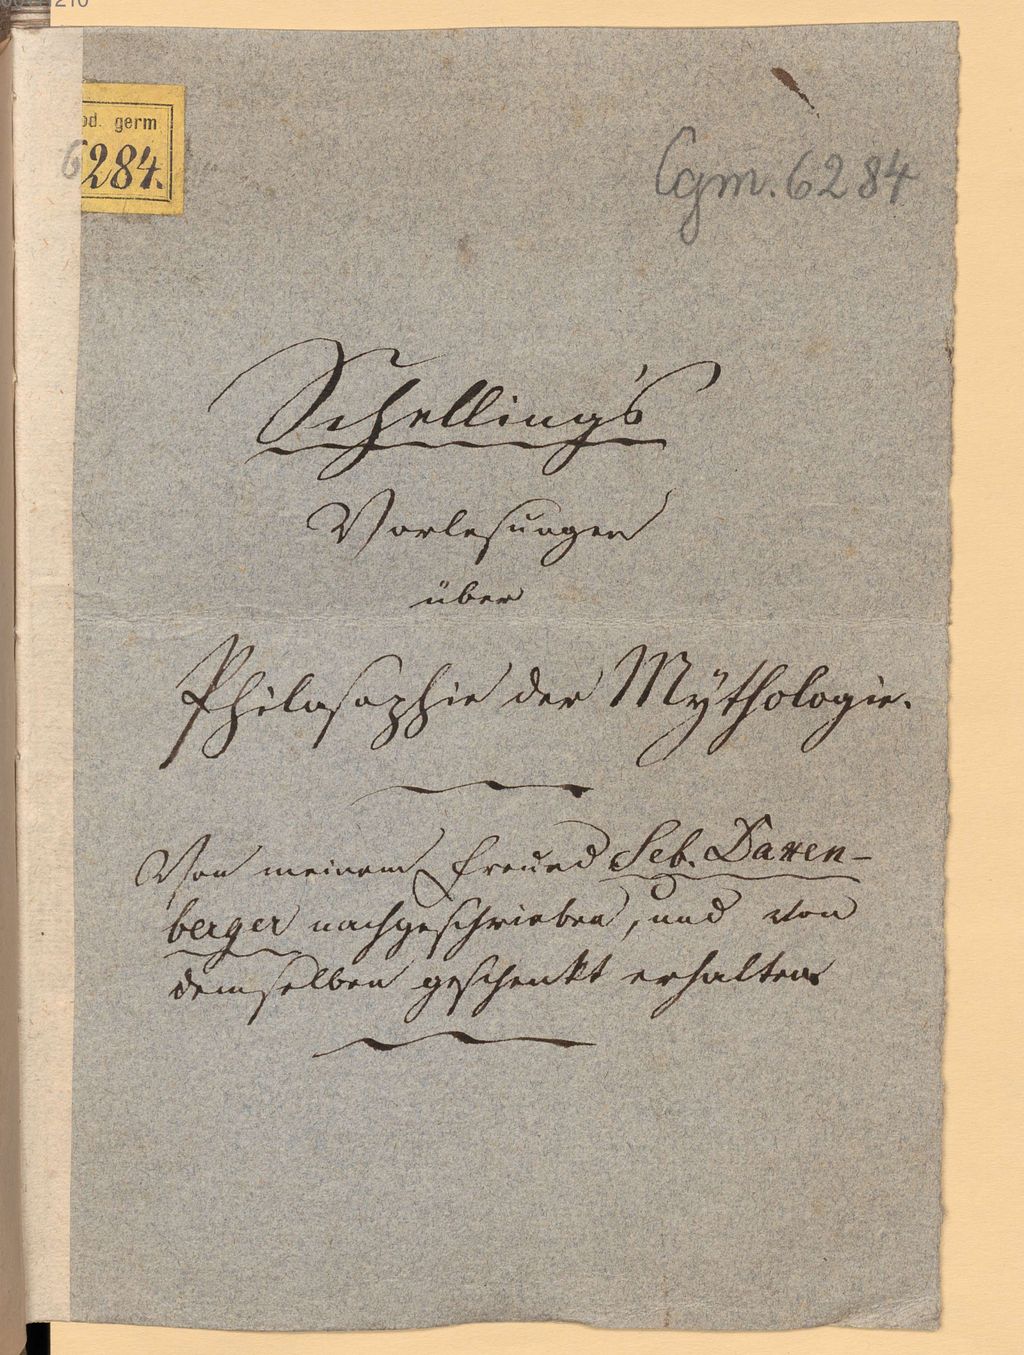 od. germ
6284.
Cgm. 6284
Schelling's
Vorlesungen
über
Philosophie der Mythologie.
Von meinem Freund Seb. Daxen-
berger nachgeschrieben, und von
demselben geschenkt erhalten